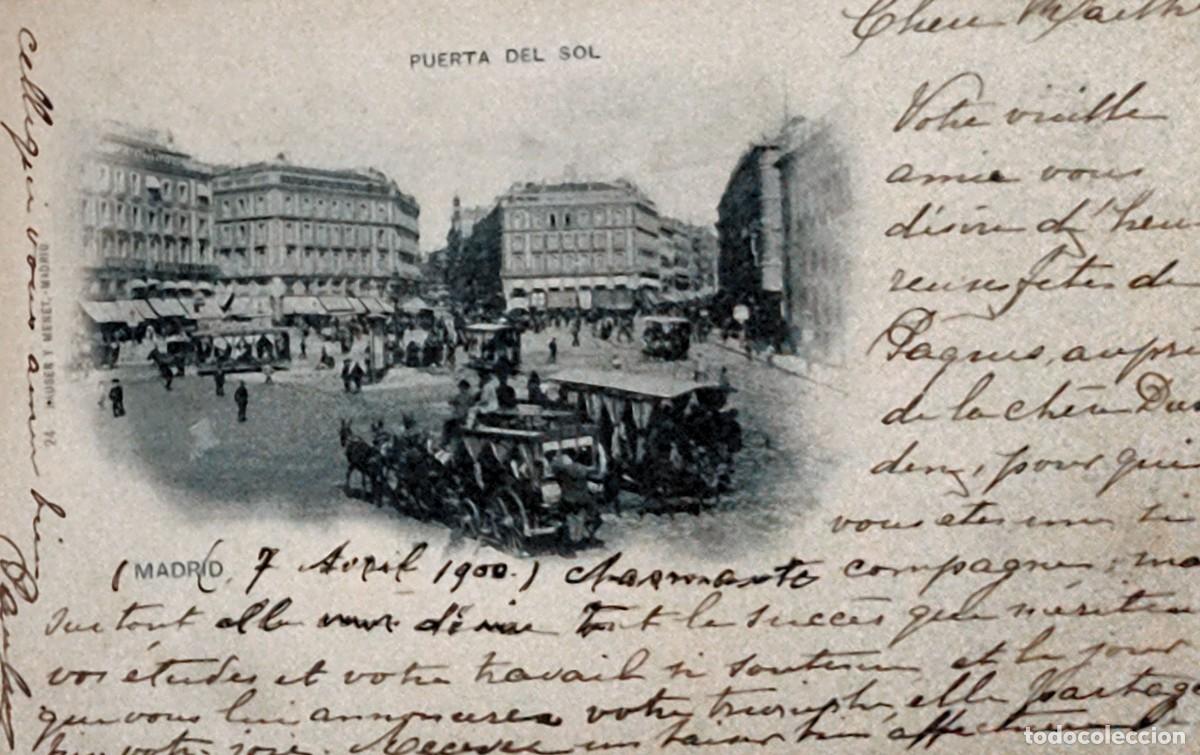 PUERTA DEL SOL
Votre vieille
amie vous
désire d'heu
reuses fêtes de
Pâques, auprès
de la chère Du
den, pour qui
vous êtes une si
(MADRID, 7 Avril 1900.) charmante compagne; ma
surtout elle vous désire tout le succès que méritent
vos études et votre travail si soutenu et le jour
que vous lui annoncerez votre triomphe, elle partage
votre joie. Recevez un baiser très affectueux de
celle qui vous aime bien
24 HAUSER Y MENET.-MADRID
todocoleccion